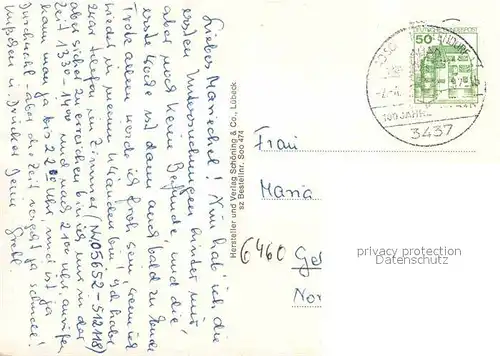 Liebes Mariechel! Nun hab' ich die
ersten Untersuchungen hinter mir
aber noch keine Befunde, und die
erste Woche ist dann auch bald zu Ende
Trotz allem werde ich froh sein wenn ich
wieder in meinen 4 Wänden bin! Ich habe
zwar Telefon im Zimmer (Nr. 05652-512118)
aber sicher zu erreichen bin ich nur in der
Zeit 1330-1400 und nach 2100 Uhr anrufen
kann man ja bis 2200 Uhr und ist ja
Durchwahl - aber die Zeit vergeht ja schnell!
Grüßchen u. Drücker Deine
Hersteller und Verlag Schöning & Co., Lübeck
sz Bestellnr. Soo 474
50
DEUTSCHE BUNDESPOST
100 JAHRE
3437
Frau
Maria
6460
Gel
Nor
privacy protection
Datenschutz